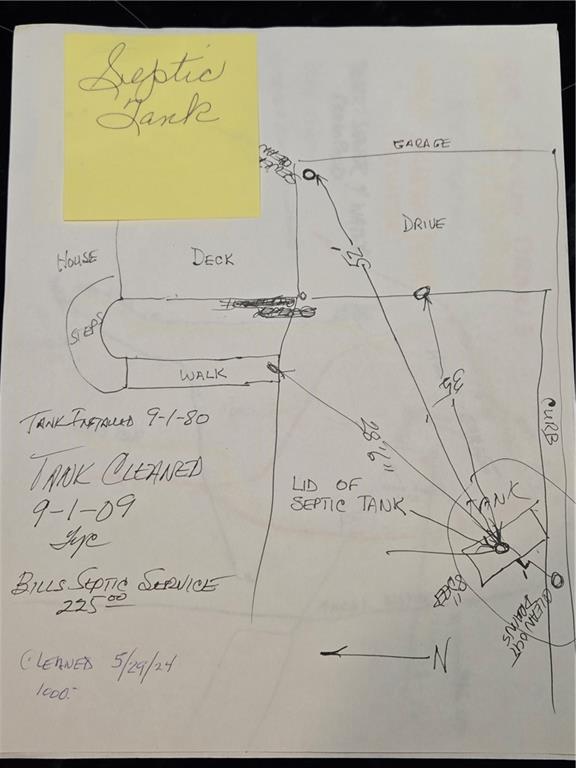 Septic
Tank
GARAGE
DRIVE
HOUSE
DECK
25'
STEPS
WALK
35'
CURB
28'6"
TANK INSTALLED 9-1-80
TANK CLEANED
9-1-09
LID OF
SEPTIC TANK
TANK
BILLS SEPTIC SERVICE
225.00
8" DEEP
CLEAN OUT
N
CLEANED 5/29/24
1000.-